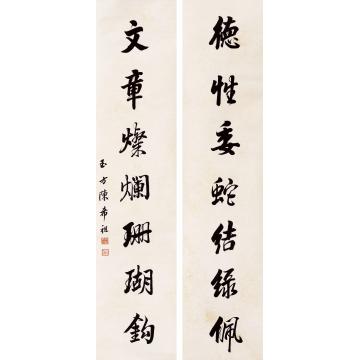 德性委蛇結綠佩
文章燦爛珊瑚鈎
玉方陳希祖